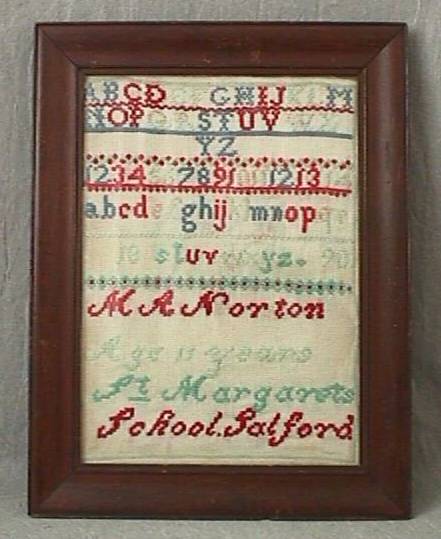 ABCD GHIJ M
NOP STUV
YZ
1234 7891 1213
abcd ghij mnop
18 st uv yz. 90
M A Norton
Age 11 years
St Margarets
School. Salford